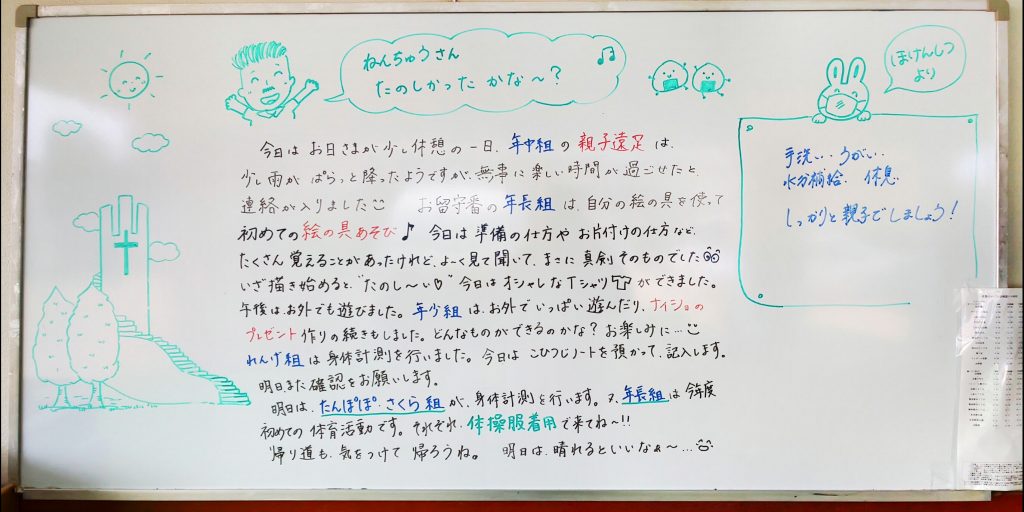 ねんちゅうさん
たのしかった かな〜?
ほけんしつ
より
今日は お日さまが 少し休憩の一日、年中組の親子遠足は、
少し雨が ぱらっと降ったようですが、無事に楽しい時間が過ごせたと、
連絡が入りました お留守番の年長組は、自分の絵の具を使って
初めての絵の具あそび♪ 今日は準備の仕方やお片付けの仕方など、
たくさん覚えることがあったけれど、よーく見て聞いて、まさに真剣そのものでした
いざ描き始めると、“たのし〜い♡” 今日はオシャレなTシャツができました。
午後は、お外でも遊びました。年少組は、お外でいっぱい遊んだり、ナイショの
プレゼント作りの続きもしました。どんなものができるのかな?お楽しみに…
れんげ組は身体計測を行いました。今日はこひつじノートを預かって、記入します。
明日また確認をお願いします。
明日は、たんぽぽ・さくら組が、身体計測を行います。又、年長組は今年度
初めての体育活動です。それぞれ、体操服着用で来てね〜!!
帰り道も、気をつけて帰ろうね。 明日は、晴れるといいなぁ〜…
手洗い・うがい・
水分補給・休息
しっかりと親子でしましょう!